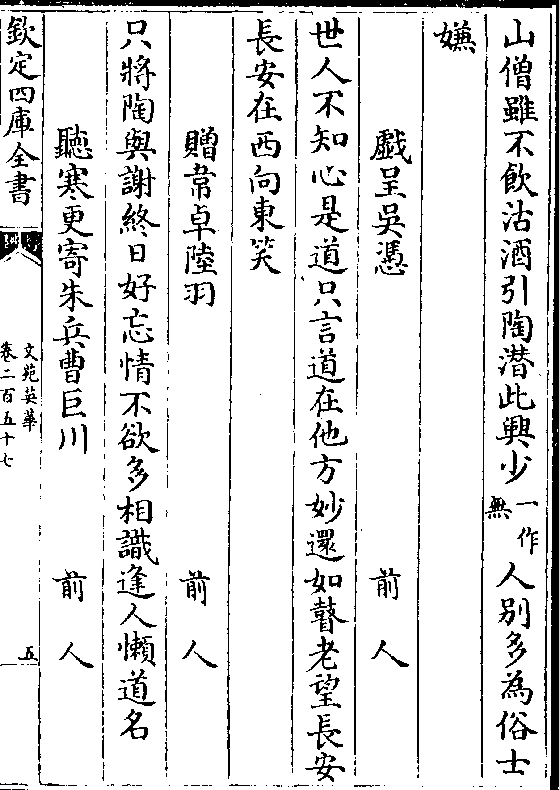 山僧雖不飲沽酒引陶潛此興少一作無人别多為俗士
嫌
戲呈吳馮　前人
世人不知心是道只言道在他方妙還如瞽老望長安
長安在西向東笑
贈韋卓陸羽　前人
只將陶與謝終日好忘情不欲多相識逢人懶道名
聽寒更寄朱兵曹巨川　前人
欽定四庫全書
文苑英華
卷二百五十七
五